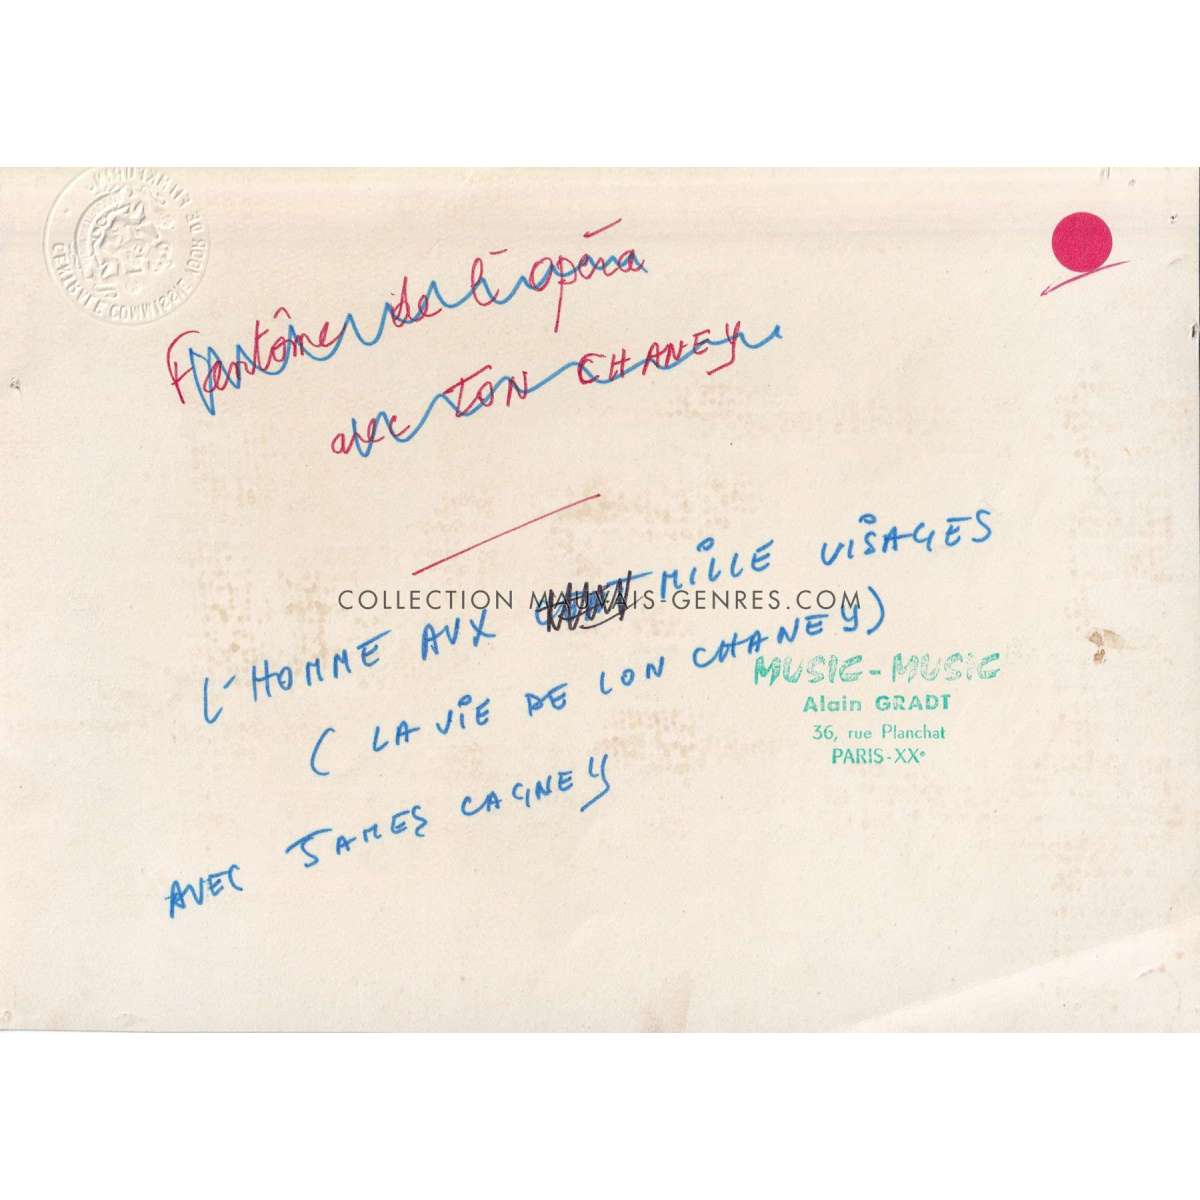 Fantôme de l'opéra
avec LON CHANEY
L'HOMME AUX MILLE VISAGES
COLLECTION MAUVAIS-GENRES.COM
( LA VIE DE LON CHANEY)
AVEC JAMES CAGNEY
MUSIC-MUSIC
Alain GRADT
36, rue Planchat
PARIS-XXe